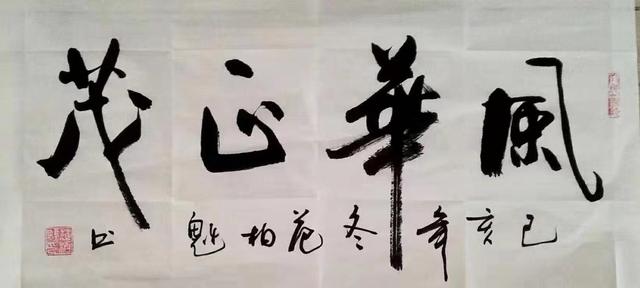 風華正茂
己亥年冬范柏魁书